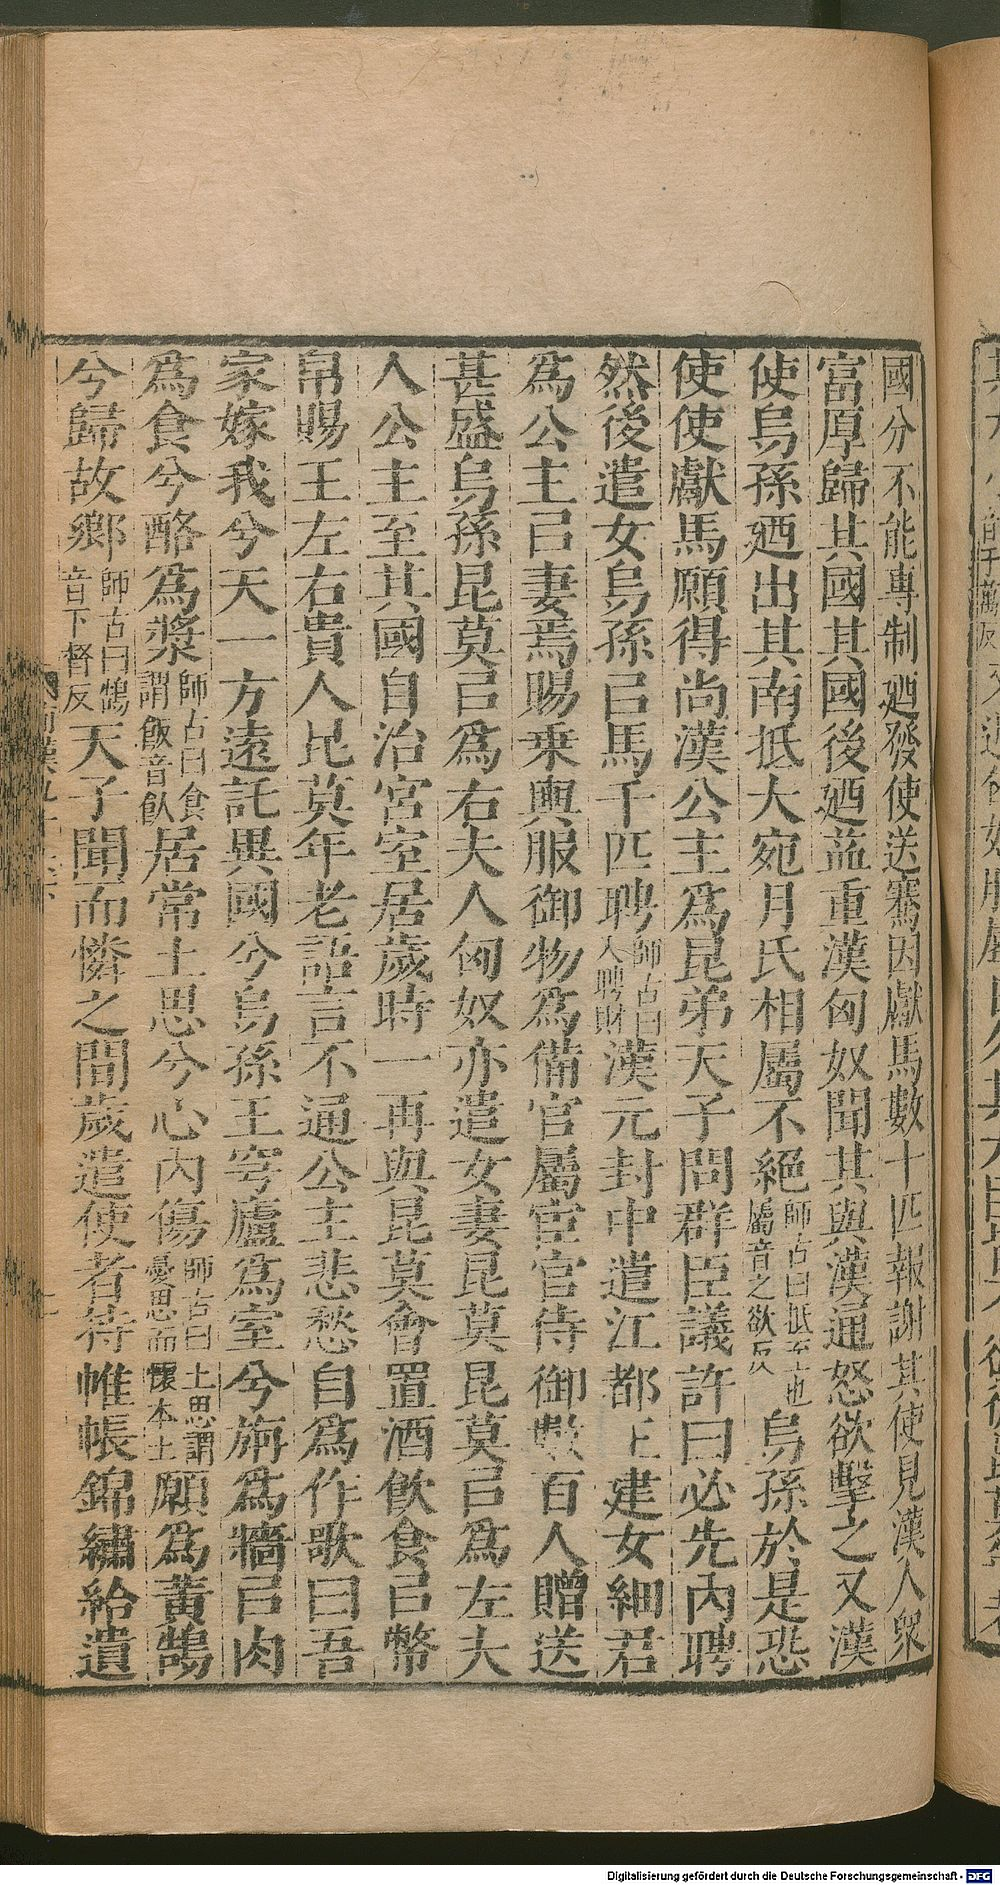 國分不能專制廼發使送騫因獻馬數十匹報謝其使見漢人衆
富厚歸其國其國後廼益重漢匈奴聞其與漢通怒欲擊之又漢
使烏孫廼出其南抵大宛月氏相屬不絕師古曰抵至也屬音之欲反烏孫於是恐
使使獻馬願得尚漢公主爲昆弟天子問群臣議許曰必先內聘
然後遣女烏孫㠯馬千匹聘師古曰入聘財漢元封中遣江都王建女細君
爲公主㠯妻焉賜乗輿服御物爲備官屬宦官侍御數百人贈送
甚盛烏孫昆莫㠯爲右夫人匈奴亦遣女妻昆莫昆莫㠯爲左夫
人公主至其國自治宮室居歲時一再與昆莫會置酒飲食㠯幣
帛賜王左右貴人昆莫年老語言不通公主悲愁自爲作歌曰吾
家嫁我兮天一方遠託異國兮烏孫王穹廬爲室兮旃爲牆㠯肉
爲食兮酪爲漿師古曰食謂飯音飤居常土思兮心內傷師古曰土思謂憂思而懷本土願爲黃鵠
兮歸故鄉師古曰鵠音下督反天子聞而憐之間歲遣使者持帷帳錦繡給遺
Digitalisierung gefördert durch die Deutsche Forschungsgemeinschaft - DFG